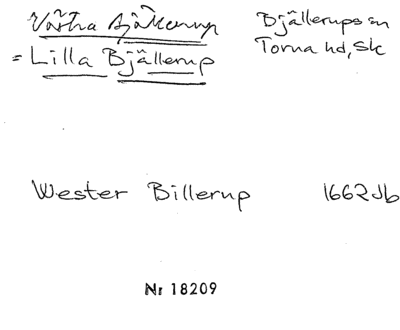 Västra Bjällerup
Bjällerups sn
= Lilla Bjällerup
Torna hd, Sk
Wester Billerup 1662 Jb
Nr 18209